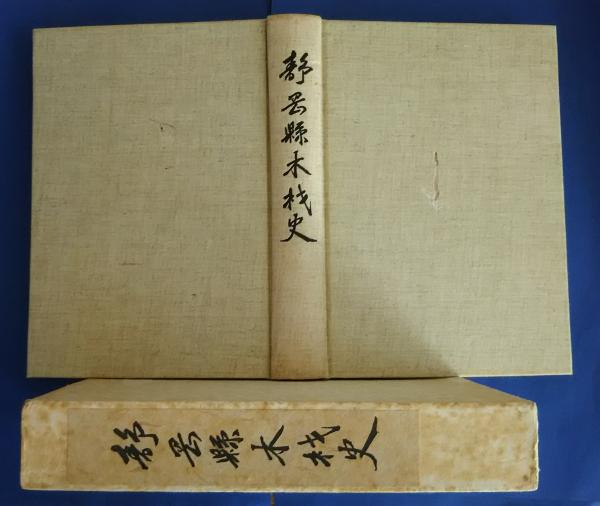 静岡縣木材史
静岡縣木材史